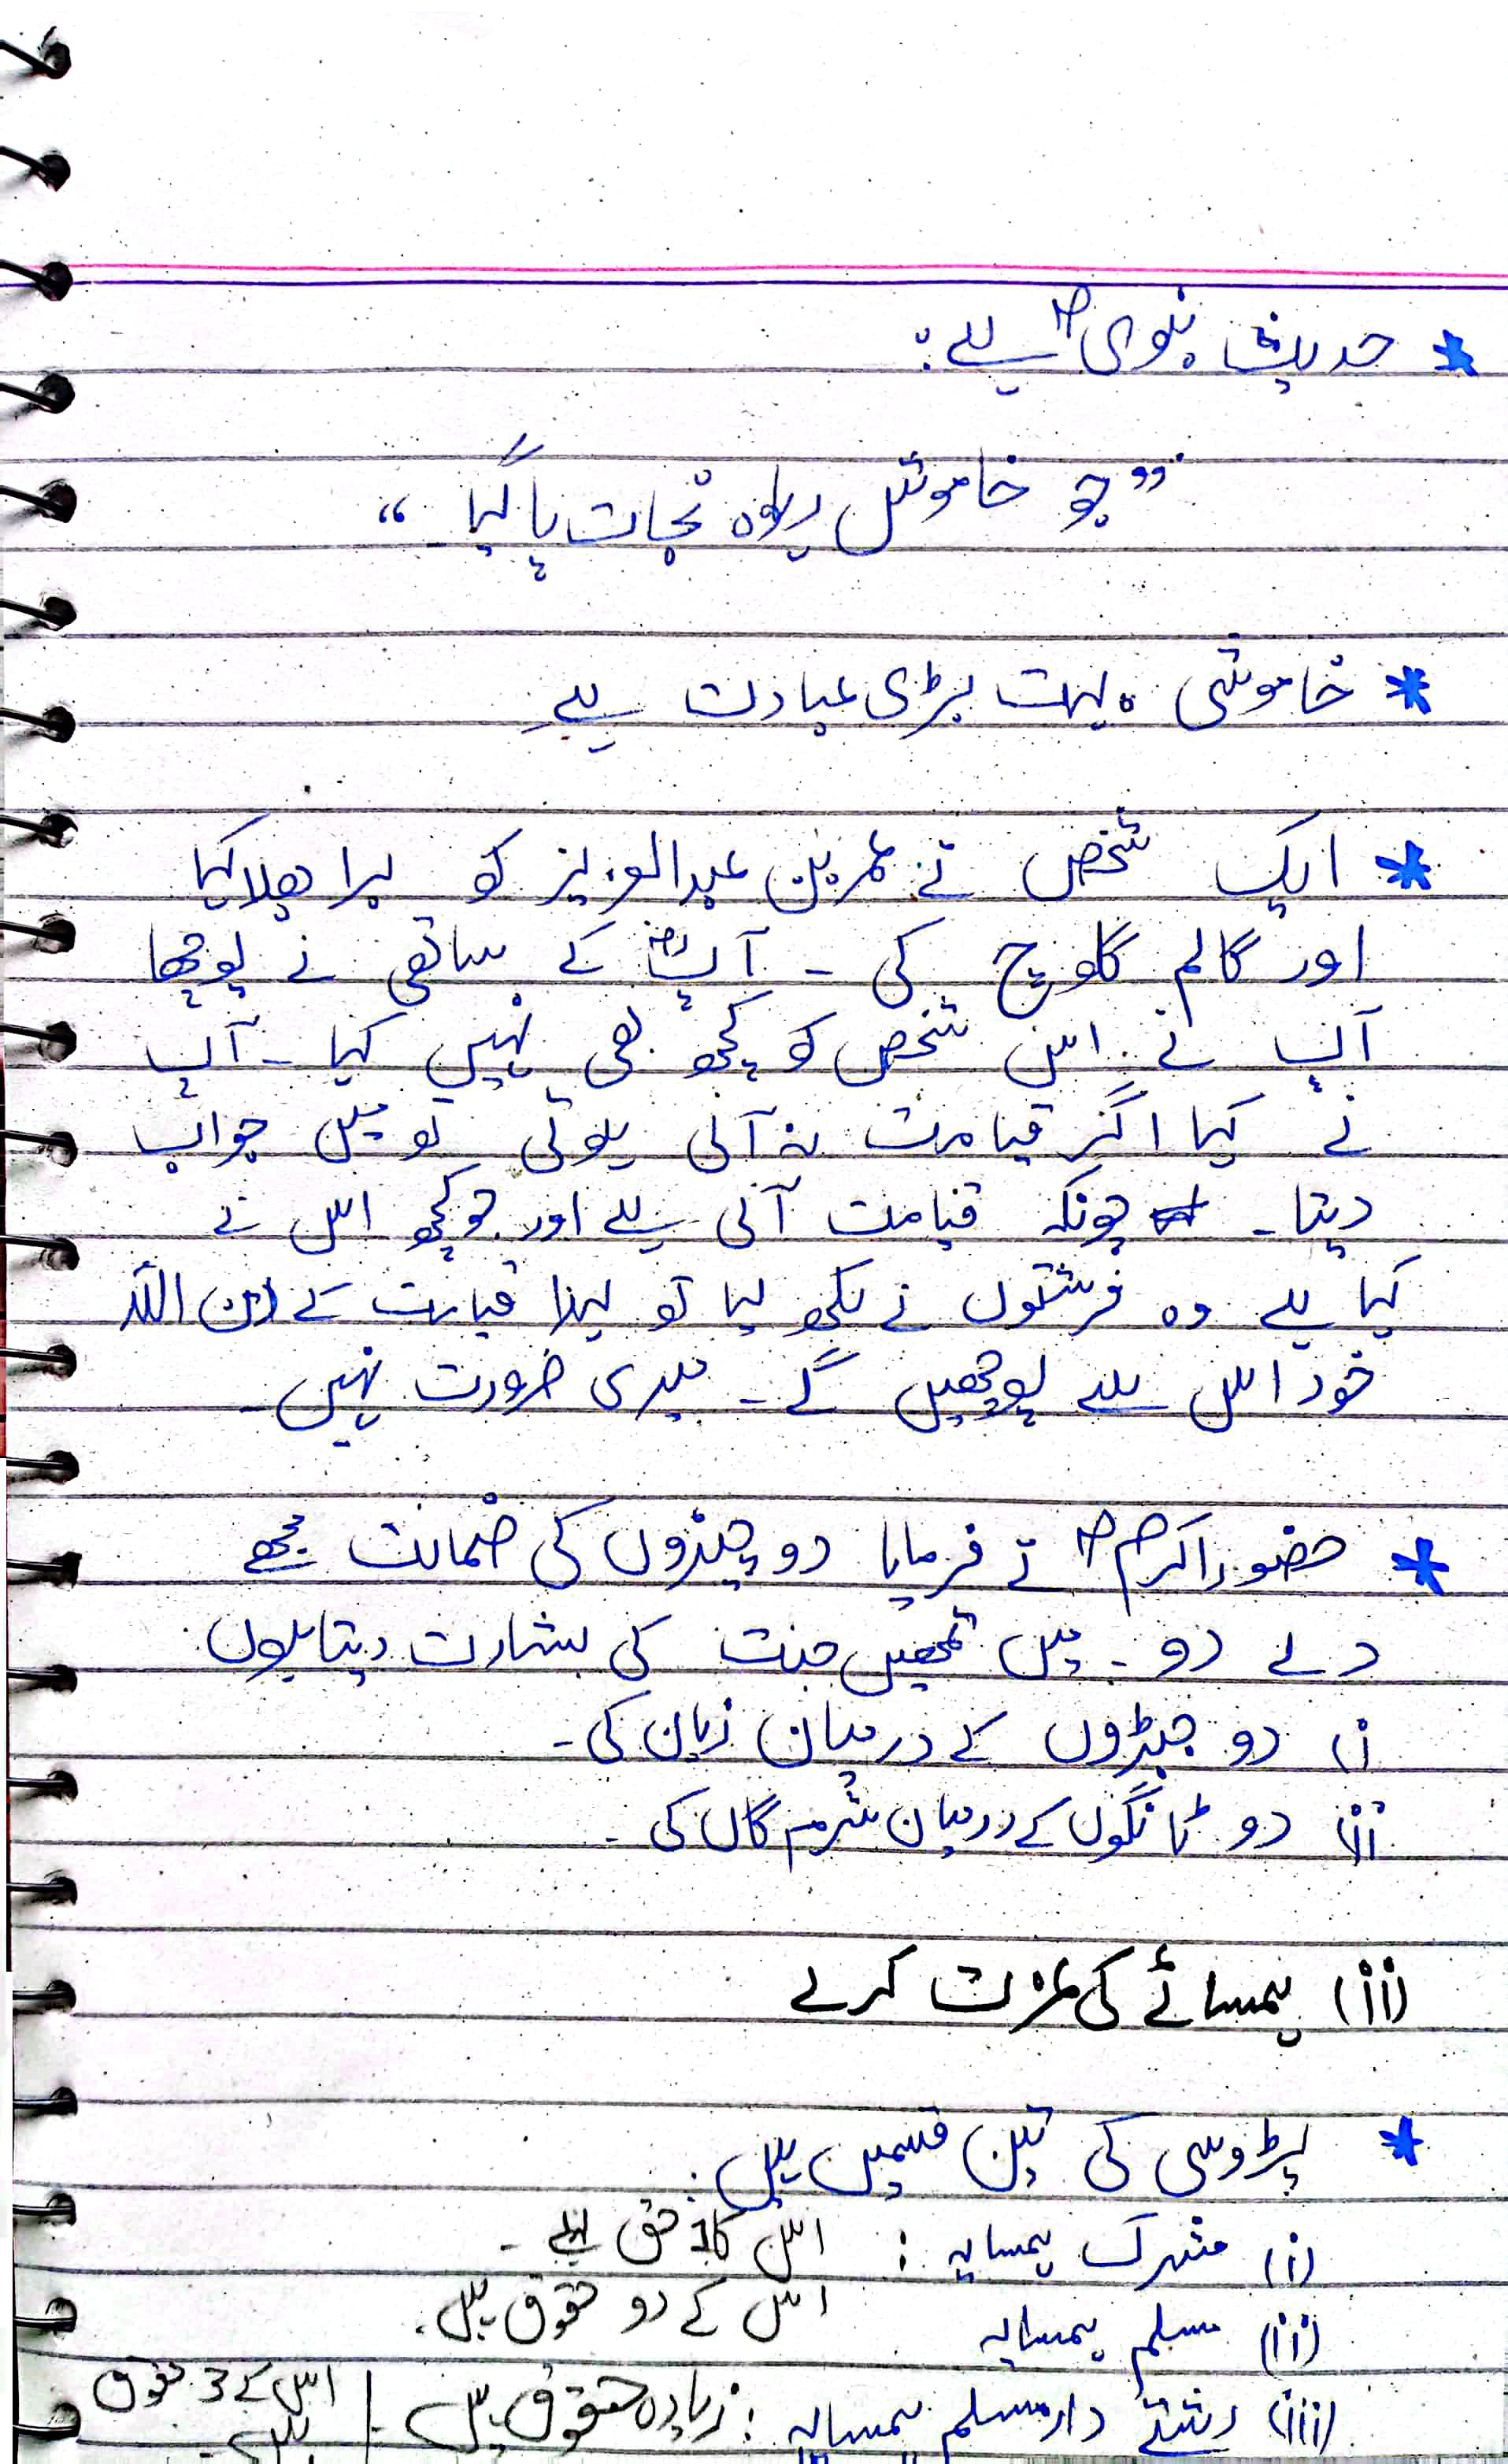 * حدیث نبویؐ ہے:
”جو خاموش رہا وہ نجات پا گیا۔“
* خاموشی بہت بڑی عبادت ہے
* ایک شخص نے عمر بن عبدالعزیز کو برا بھلا کہا
اور گالم گلوچ کی - آپؒ کے ساتھی نے پوچھا
آپ نے اس شخص کو کچھ بھی نہیں کہا - آپ
نے کہا اگر قیامت نہ آنی ہوتی تو میں جواب
دیتا - چونکہ قیامت آنی ہے اور جو کچھ اس نے
کہا ہے وہ فرشتوں نے لکھ لیا تو لہذا قیامت کے دن اللہ
خود اس سے پوچھیں گے - میری ضرورت نہیں -
* حضور اکرمؐ نے فرمایا دو چیزوں کی ضمانت مجھے
دے دو - میں تمھیں جنت کی بشارت دیتا ہوں
(i دو جبڑوں کے درمیان زبان کی -
(ii دو ٹانگوں کے درمیان شرم گاہ کی -
(iii) ہمسائے کی عزت کرے
* پڑوسی کی تین قسمیں ہیں:
(i) مشرک ہمسایہ : اس کا 1 حق ہے -
(ii) مسلم ہمسایہ اس کے دو حقوق ہیں.
(iii) رشتے دار مسلم ہمسایہ : زیادہ حقوق ہیں - / اس کے 3 حقوق
ہیں -